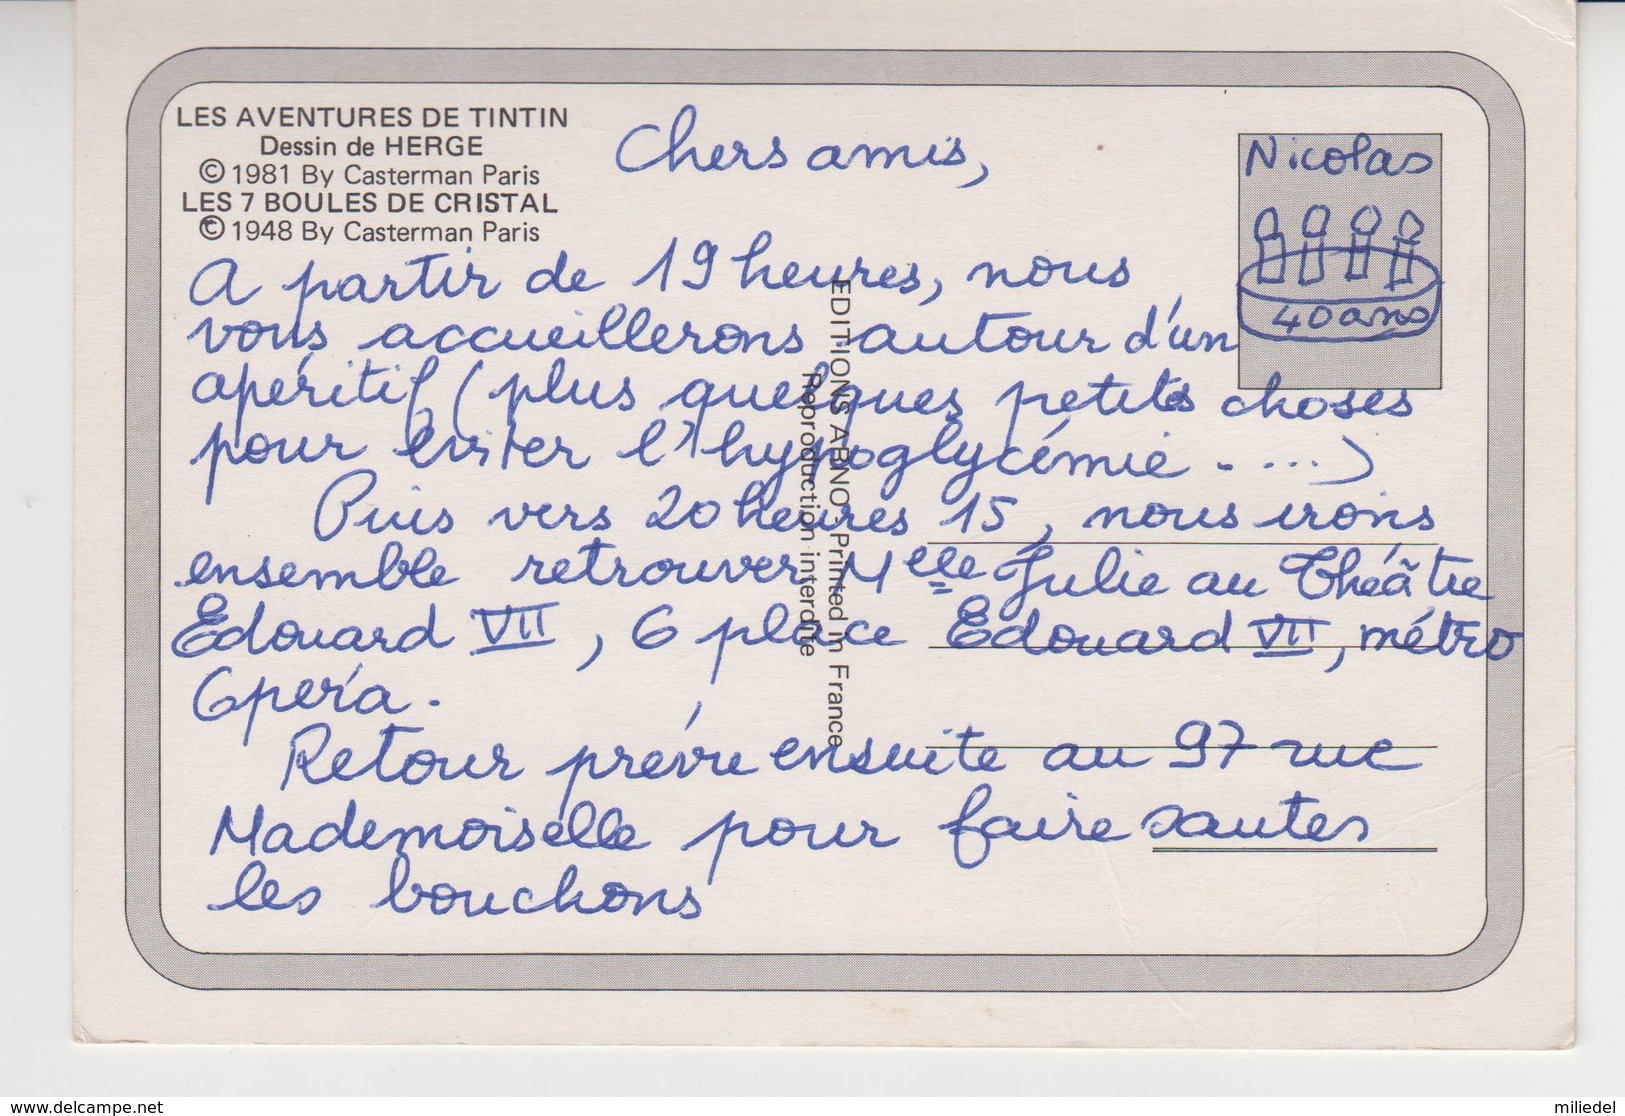 LES AVENTURES DE TINTIN
Dessin de HERGE
© 1981 By Casterman Paris
LES 7 BOULES DE CRISTAL
© 1948 By Casterman Paris
Chers amis,
Nicolas
40 ans
A partir de 19 heures, nous
vous accueillerons autour d'un
apéritif (plus quelques petites choses
pour éviter l'hypoglycémie .....)
Puis vers 20 heures 15, nous irons
ensemble retrouver Melle Julie au Théâtre
Edouard VII, 6 place Edouard VII, métro
Opéra.
Retour prévu ensuite au 97 rue
Mademoiselle pour faire sauter
les bouchons
EDITIONS ARNO. Printed in France
Reproduction interdite
www.delcampe.net
miliedel